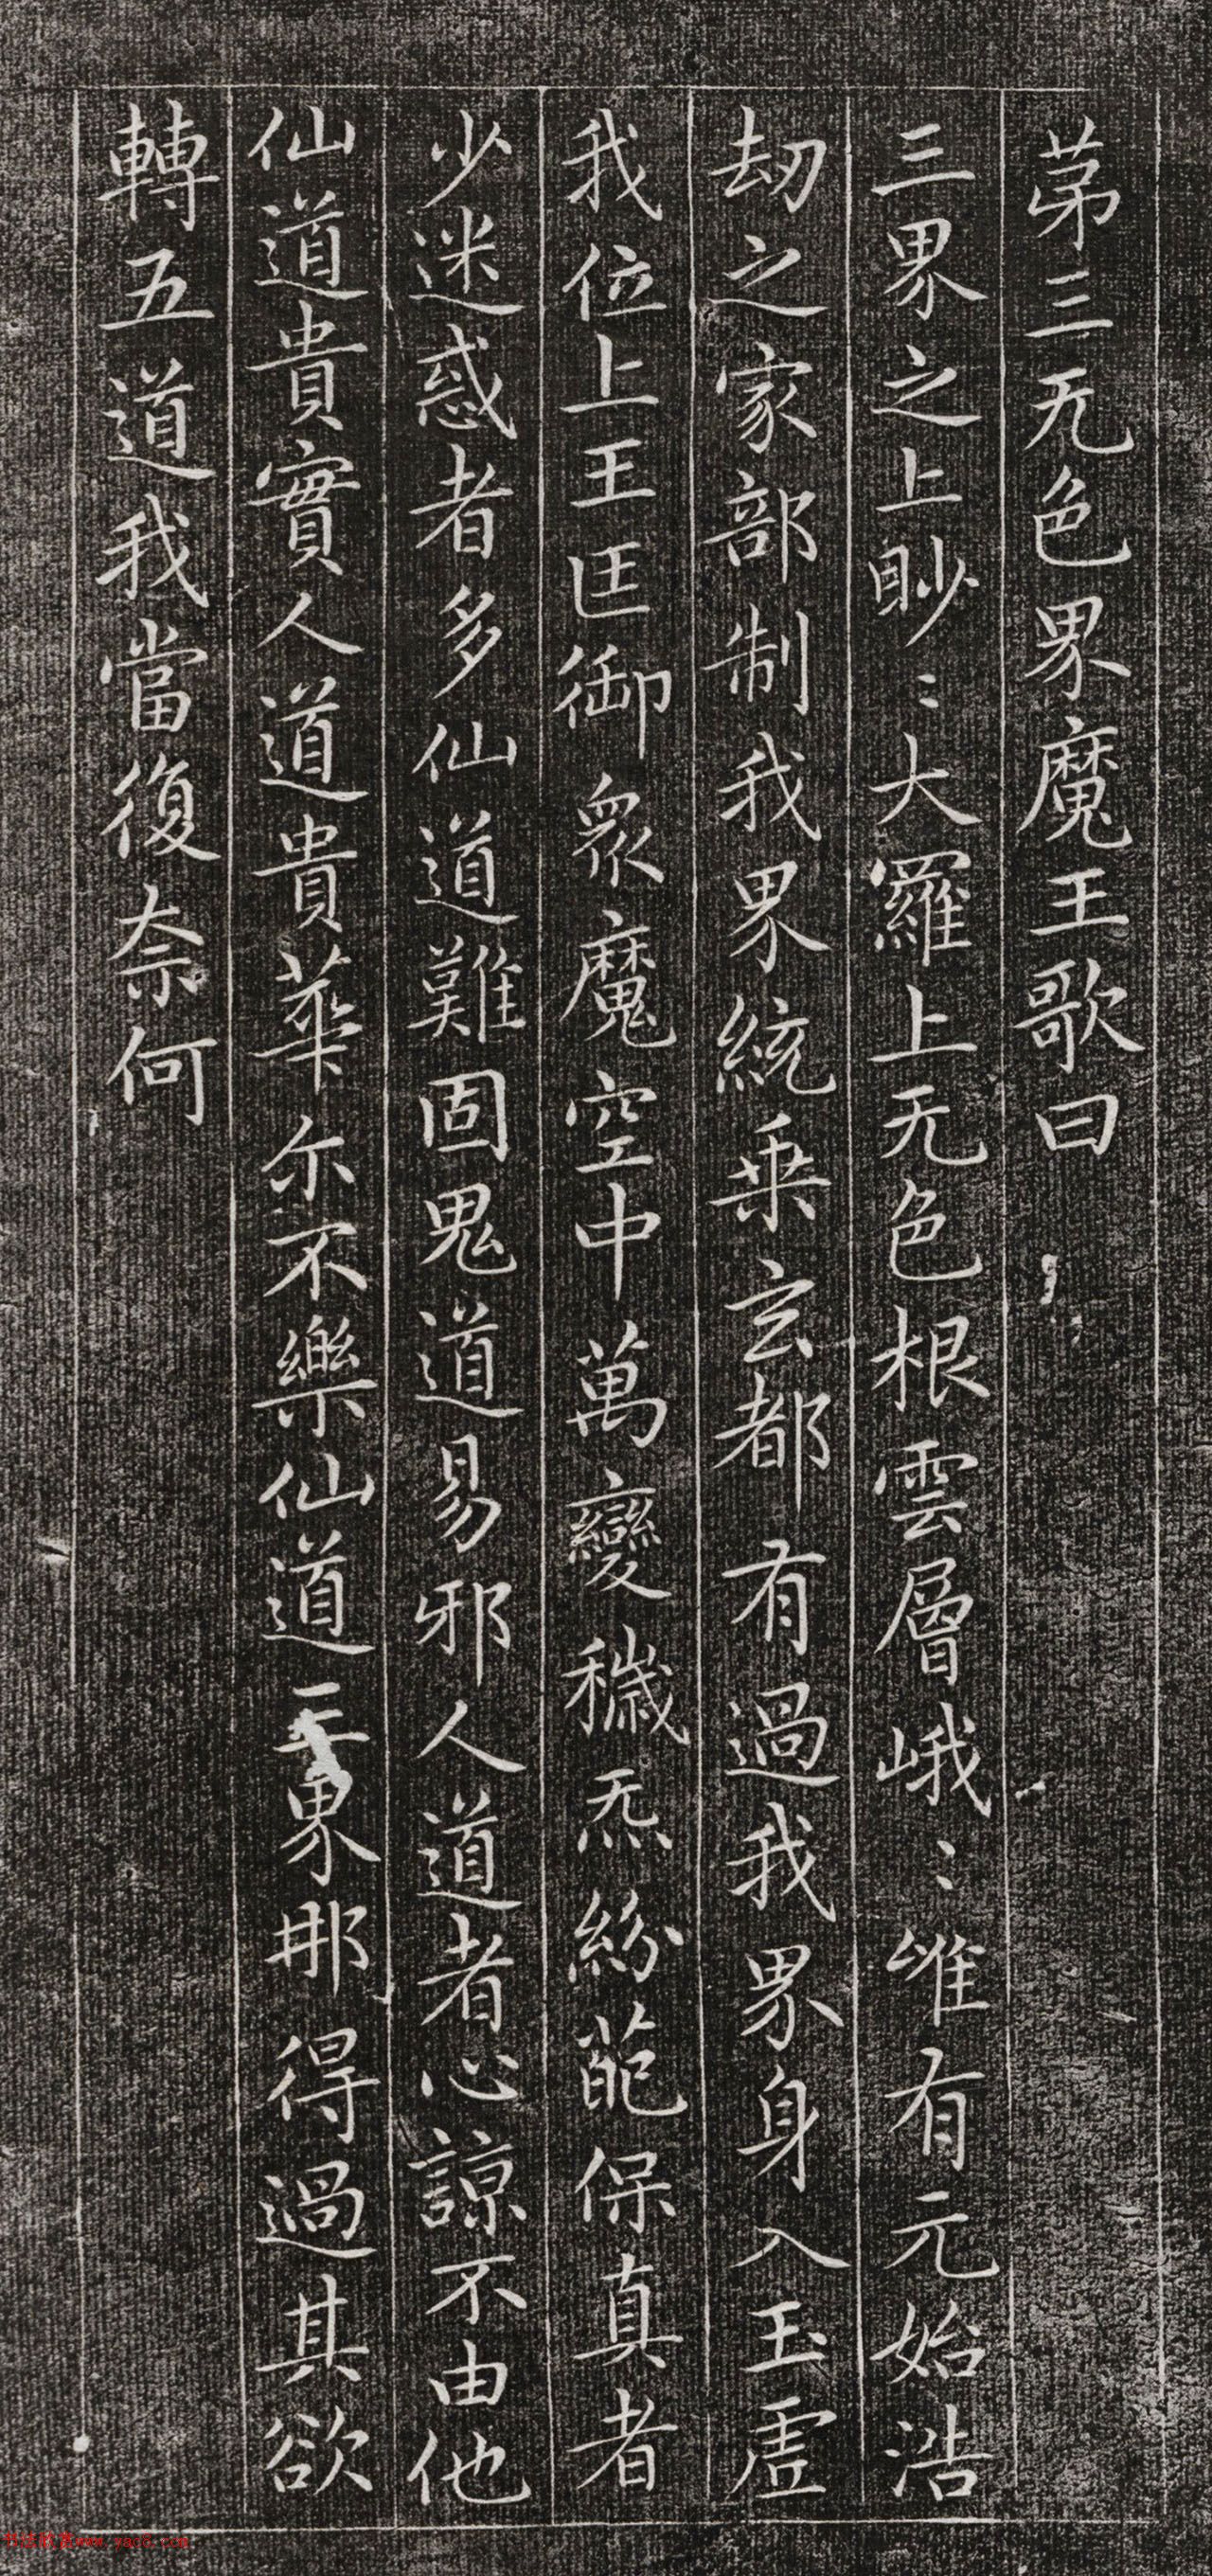 苐三无色界魔王歌曰
三界之上眇〻大羅上无色根雲層峨〻唯有元始浩
刼之家部制我界統乗玄都有過我界身入玉虛
我位上王匡御衆魔空中萬變穢炁紛葩保真者
少迷惑者多仙道難固鬼道易邪人道者心諒不由他
仙道貴實人道貴華尒不樂仙道三界那得過其欲
轉五道我當復奈何